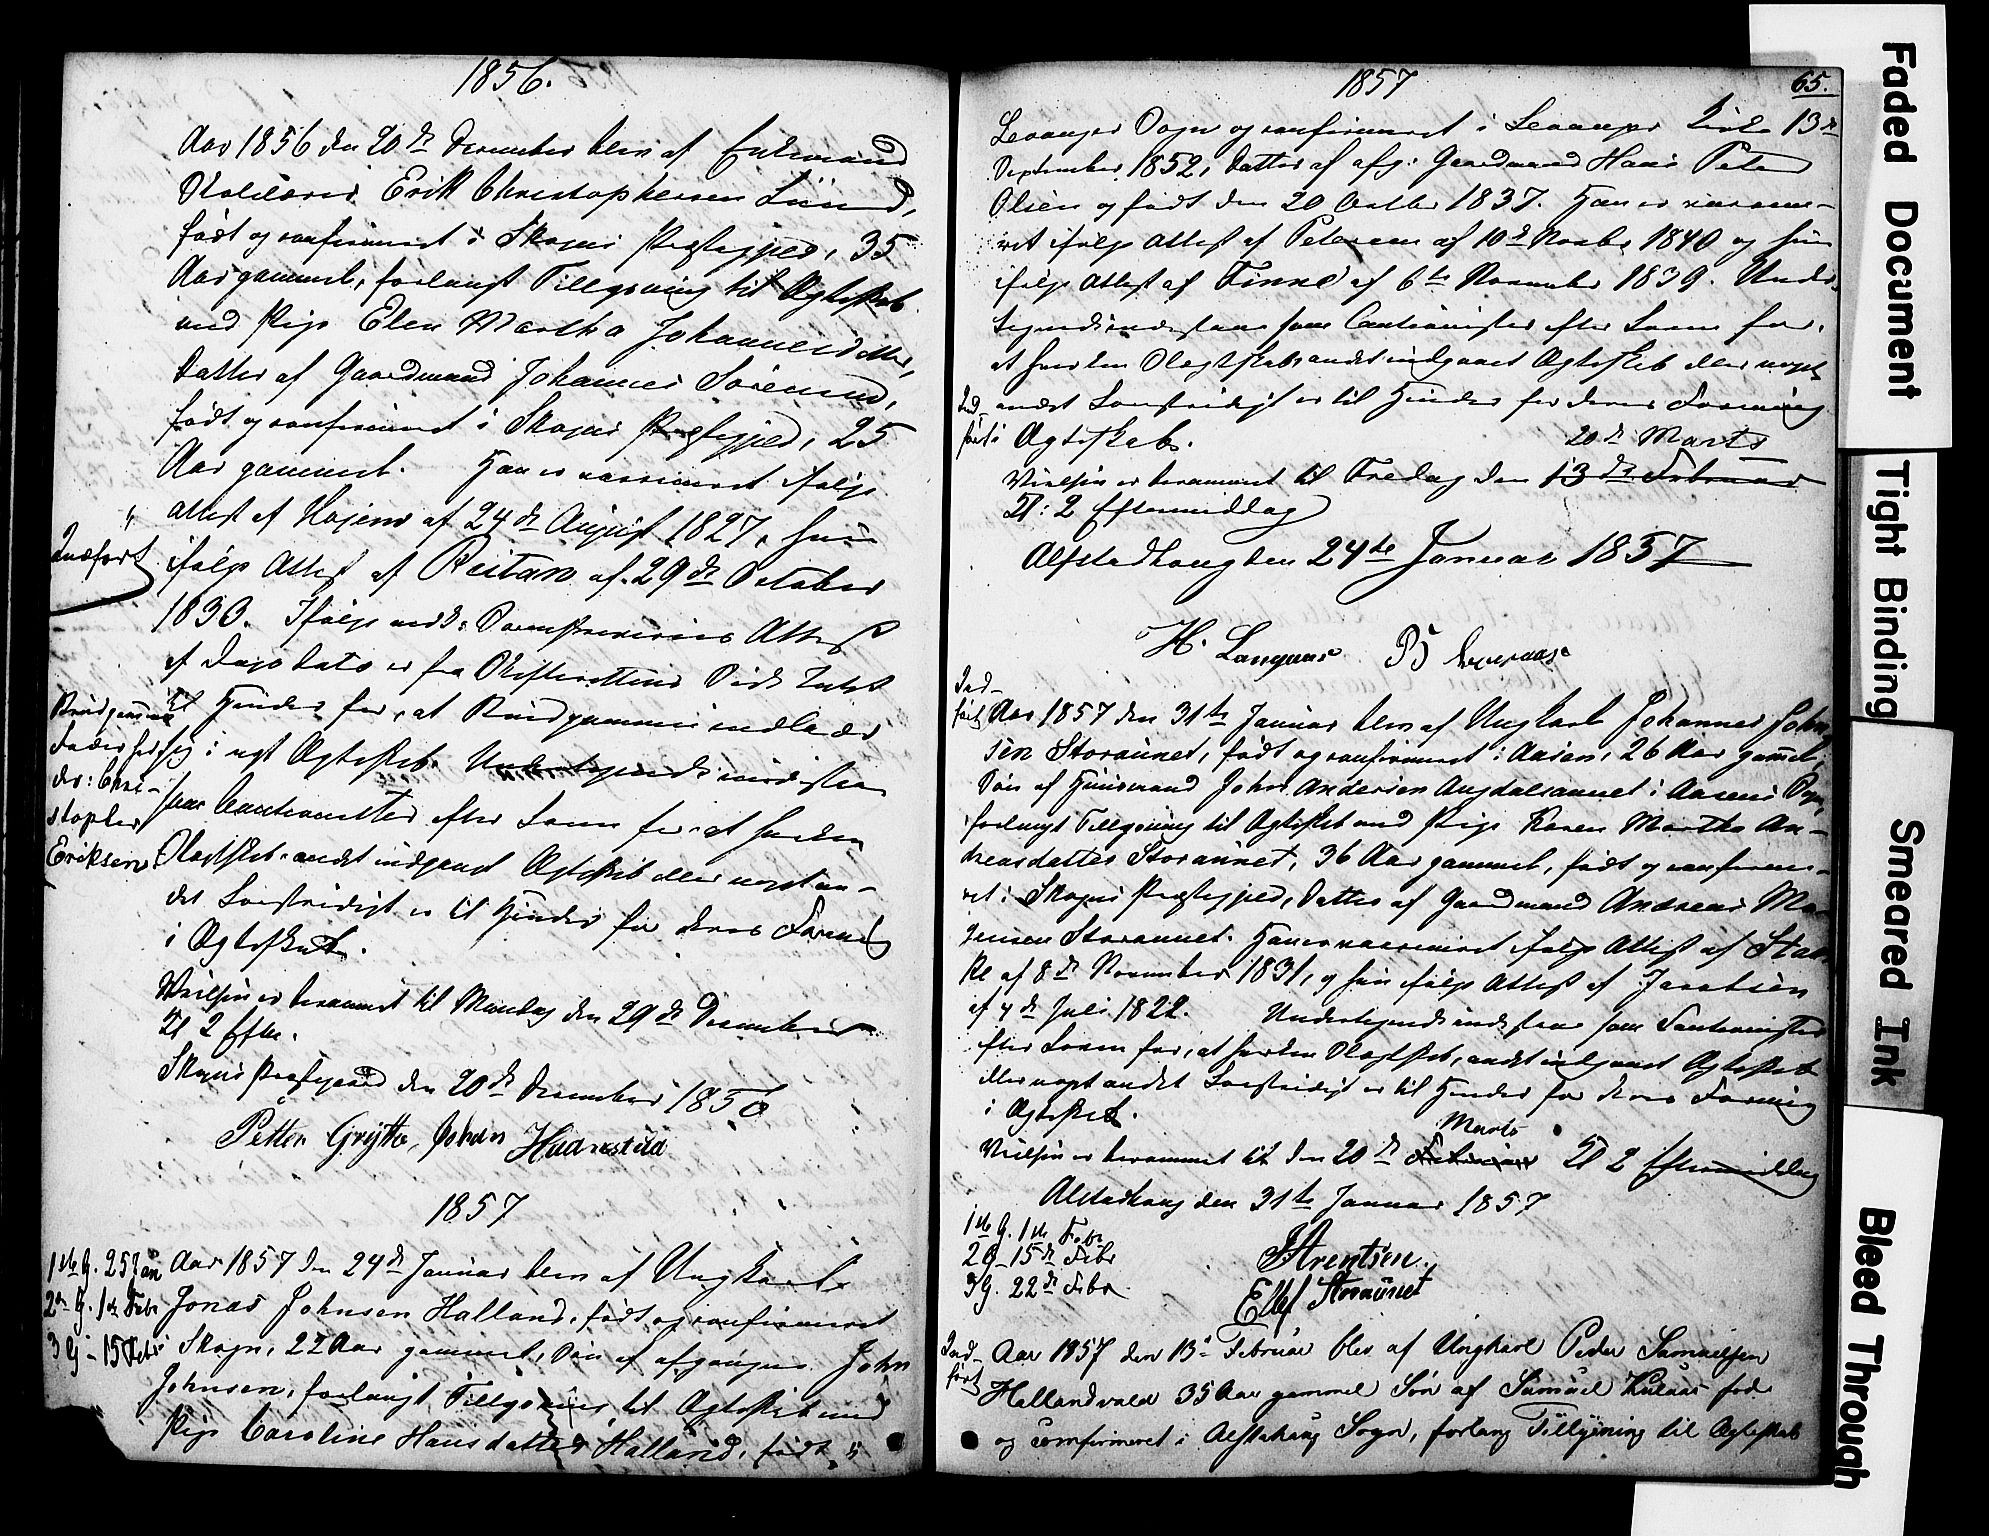 1856.
Aar 1856 den 20de December blev af Enkemand
Erik Christophersen Lund,
født og confirmeret i Skogns Præstegjeld, 35
Aar gammel, forlangt Tillysning til Ægteskab
med Pige Elen Martha Johannesdatter,
Datter af Gaardmand Johannes Sørensen,
født og confirmeret i Skogns Præstegjeld, 25
Aar gammel. Han er vaccineret ifølge
Attest af af 24de August 1827, hun
ifølge Attest af Reitan af 29de October
1833. Ifølge Attest
af Dags Dato er fra Skifterettens Side Intet
til Hinder for, at Brudgommen indlader
sig i nyt Ægteskab. Undertegnede indestaae
som Cautionister efter Loven for at hverken
Slægtskab, andet indgaaet Ægteskab eller noget an-
det Lovstridigt er til Hinder for deres Forening
i Ægteskab.
Vielsen er berammet til Mandag den 29de December
Kl 2 Efter.
Skogns Præstegaard den 20de December 1856
Petter Grÿtte, Johan
Indført
Brudgommens
Fader hed
der: Chri-
stopher
Eriksen.
1857
1ste G. 25 Jan
2den G. 1ste Febr
3 G - 15 Febr
Aar 1857 den 24de Januar blev af Ungkarl
Jonas Johnsen Halland, født og confirmeret
Skogn, 22 Aar gammel, Søn af afgangne John
Johnsen, forlangt Tillysning til Ægteskab med
Pige Caroline Hansdatter Halland, født i
1857
65.
Levanger Sogn og confirmeret i Levanger Kirke 13de
September 1852, Datter af afg: Gaardmand Hans Peter
Olsen og født den 20 October 1837. Han er vaccine-
ret ifølge Attest af Petersen af 10de Novbr 1840 og hun
ifølge Attest af Finne af 6te November 1839. Under-
tegnede indestaae som Cautionister efter Loven for,
at hverken Slægtskab, andet indgaaet Ægteskab eller noget
andet Lovstridigt er til Hinder for deres Forening
i Ægteskab.
20de Marts
Vielsen er berammet til Fredag den 13de Februar
Kl: 2 Eftermiddag
Alstadhoug den 24de Januar 1857
H. Langaas
Ind-
ført
Ind-
ført
Aar 1857 den 31te Januar blev af Ungkarl Johannes John-
sen Storaunet, født og confirmeret i Aasen, 26 Aar gammel,
Søn af Huusmand John Andersen Augdalsaunet i Aasens Sogn,
forlangt Tillysning til Ægteskab med Pige Karen Martha An-
dreasdatter Storaunet, 36 Aar gammel, født og confirme-
ret i Skogns Præstegjeld, Datter af Gaardmand Andreas Mo-
gensen Storaunet. Han er vaccineret ifølge Attest af
af 8de November 1831, og hun ifølge Attest af Jacobsen
af 4de Juli 1822. Undertegnede indestaae som Cautionister
efter Loven for, at hverken Slægtskab, andet indgaaet Ægteskab
eller noget andet Lovstridigt er til Hinder for deres Forening
i Ægteskab.
Marts
Vielsen er berammet til den 20de Februar Kl 2 Eftermiddag
Alstadhoug den 31te Januar 1857
1ste G. 1ste Febr
2 G - 15de Febr
3 G. 22de Febr
Arentsen.
Ellef Storaunet
Ind-
ført
Aar 1857 den 13de Februar blev af Ungkarl Peder Samuelsen
Hallandsvald 35 Aar gammel Søn af Samuel født
og confirmeret i Alstahaug Sogn, forlang Tillysning til Ægteskab
Faded Document
Tight Binding
Smeared Ink
Bleed Through